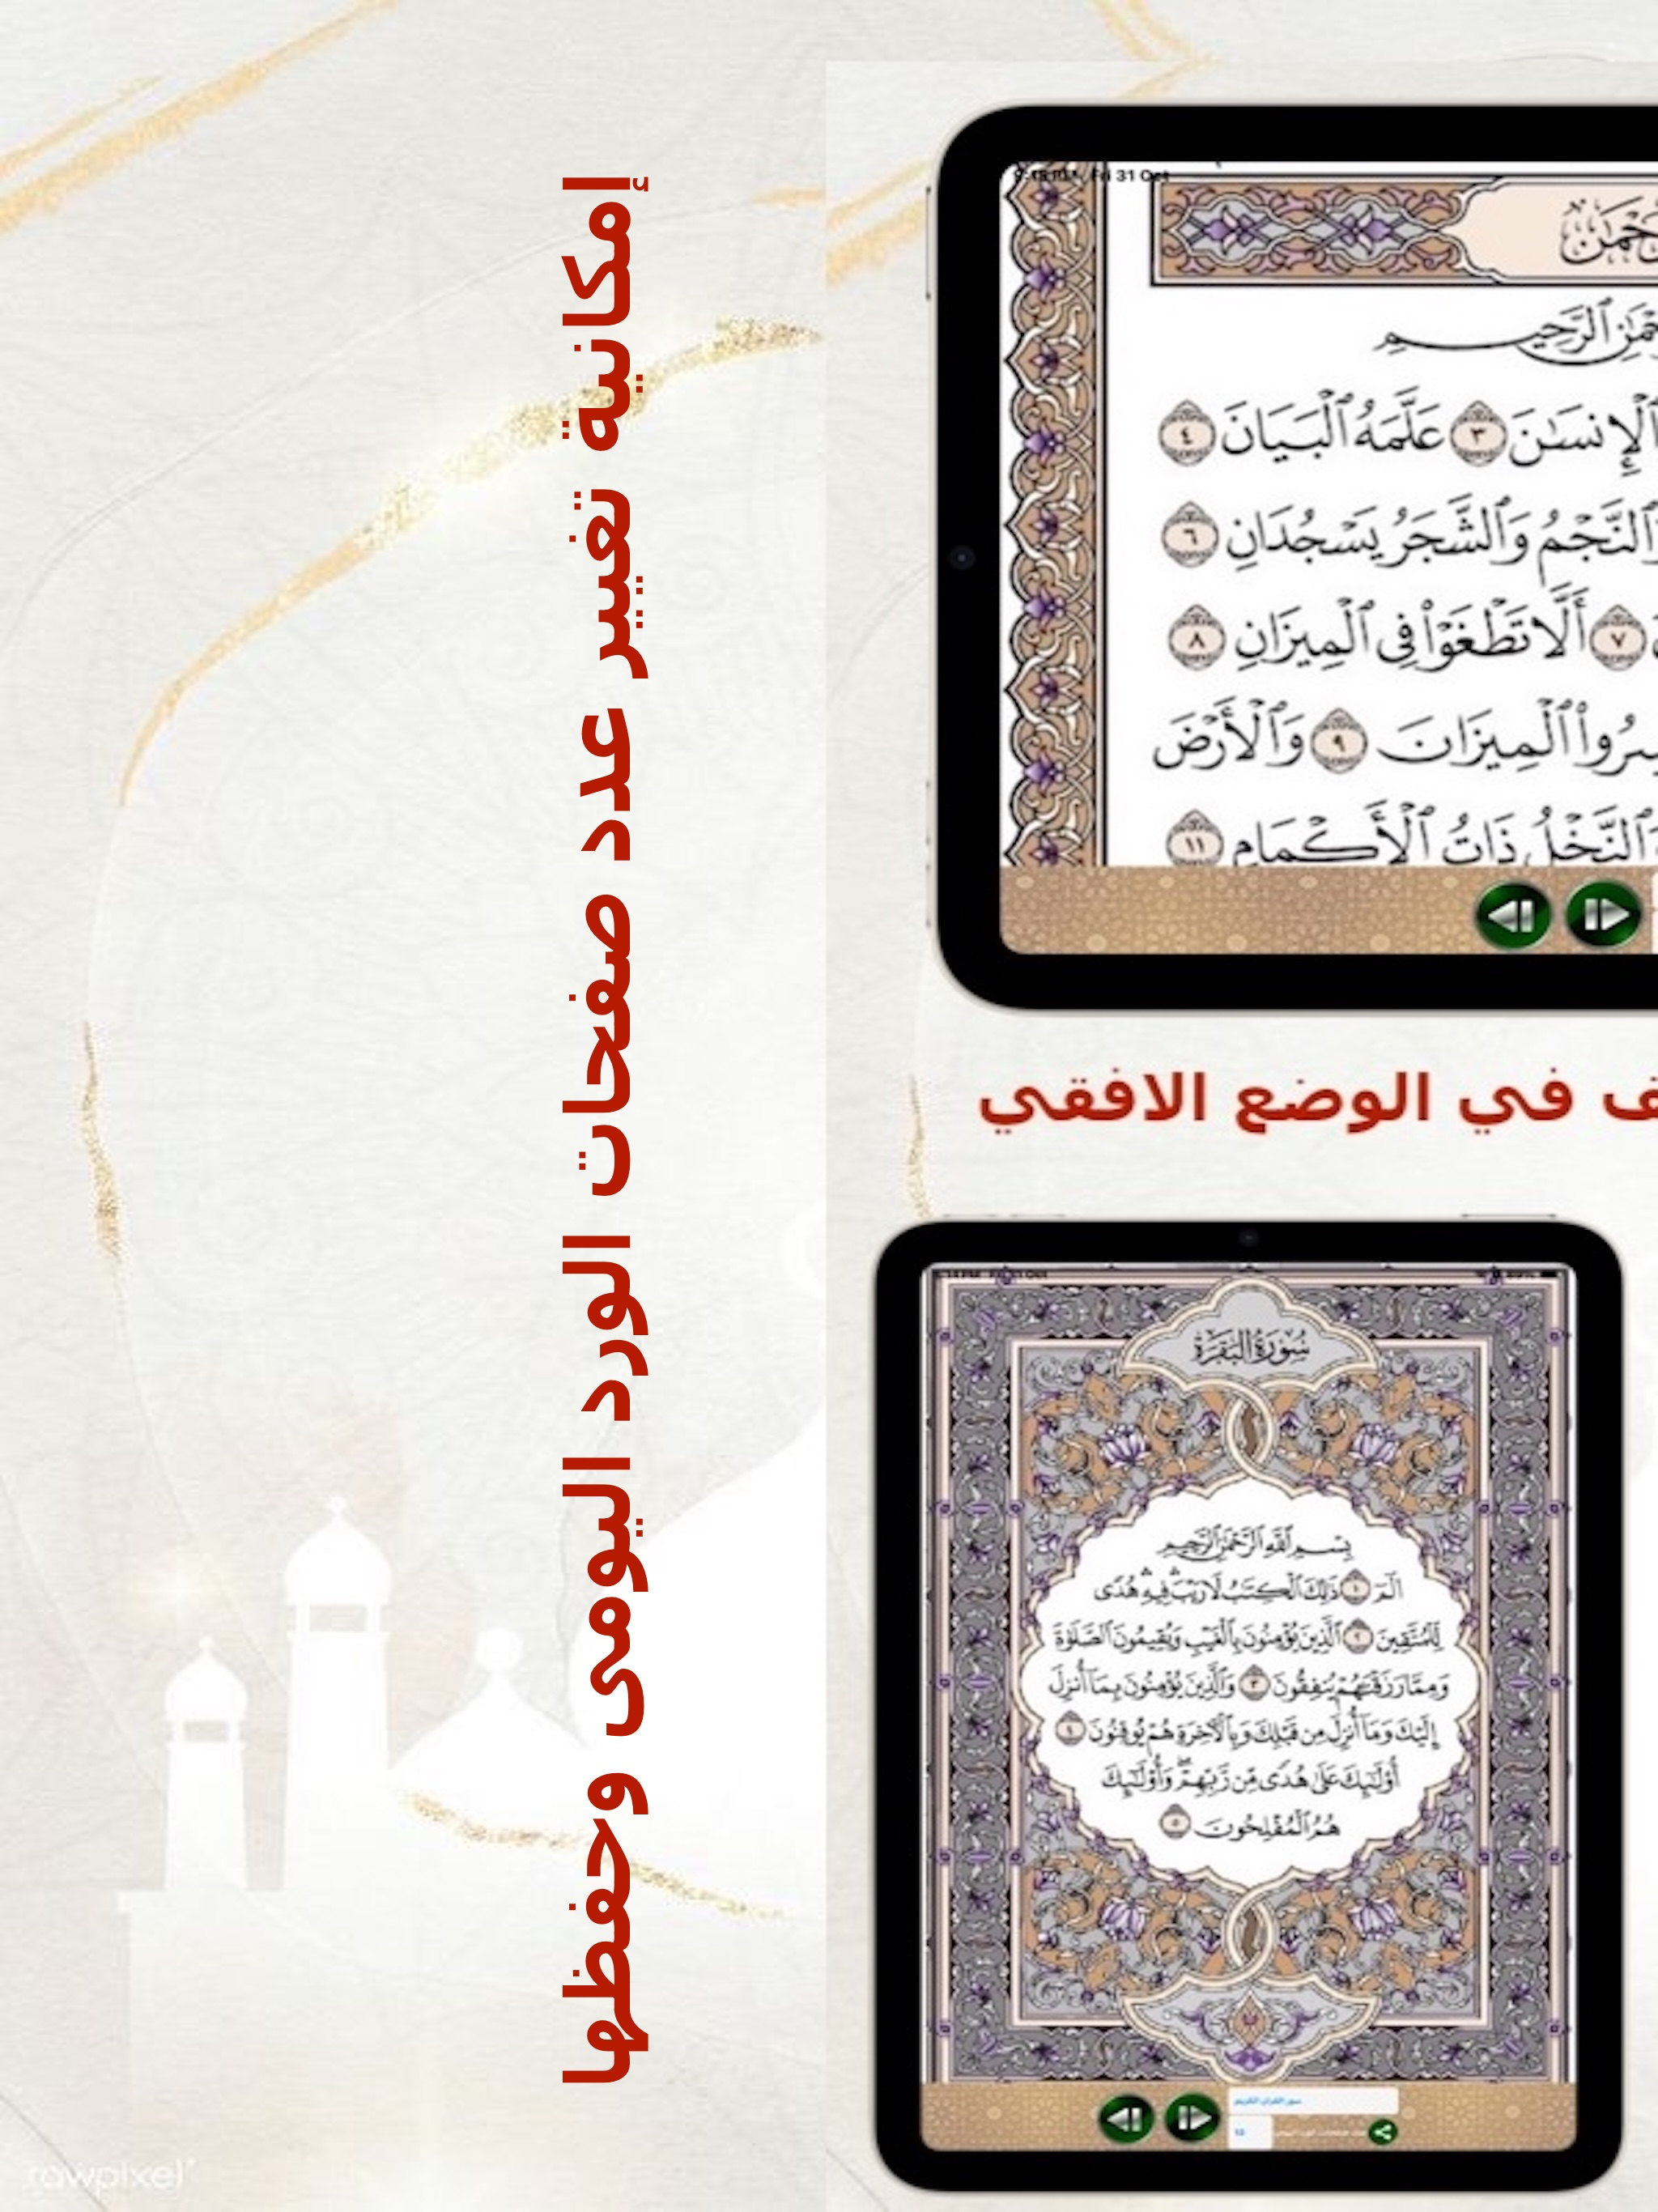 إمكانية تغيير عدد صفحات الورد اليومى وحفظها
Fri 31 Oct
ٱلرَّحِيمِ
ٱلْإِنسَٰنَ ٣ عَلَّمَهُ ٱلْبَيَانَ ٤
وَٱلنَّجْمُ وَٱلشَّجَرُ يَسْجُدَانِ ٦
٧ أَلَّا تَطْغَوْا۟ فِى ٱلْمِيزَانِ ٨
ٱلْمِيزَانَ ٩ وَٱلْأَرْضَ
وَٱلنَّخْلُ ذَاتُ ٱلْأَكْمَامِ ١١
في الوضع الافقي
سُورَةُ البَقَرَةِ
بِسْمِ ٱللَّهِ ٱلرَّحْمَٰنِ ٱلرَّحِيمِ
الٓمٓ ١ ذَٰلِكَ ٱلْكِتَٰبُ لَا رَيْبَ ۛ فِيهِ ۛ هُدًى
لِّلْمُتَّقِينَ ٢ ٱلَّذِينَ يُؤْمِنُونَ بِٱلْغَيْبِ وَيُقِيمُونَ ٱلصَّلَوٰةَ
وَمِمَّا رَزَقْنَٰهُمْ يُنفِقُونَ ٣ وَٱلَّذِينَ يُؤْمِنُونَ بِمَآ أُنزِلَ
إِلَيْكَ وَمَآ أُنزِلَ مِن قَبْلِكَ وَبِٱلْءَاخِرَةِ هُمْ يُوقِنُونَ ٤
أُو۟لَٰٓئِكَ عَلَىٰ هُدًى مِّن رَّبِّهِمْ ۖ وَأُو۟لَٰٓئِكَ
هُمُ ٱلْمُفْلِحُونَ ٥
سور القران الكريم
rawpixel